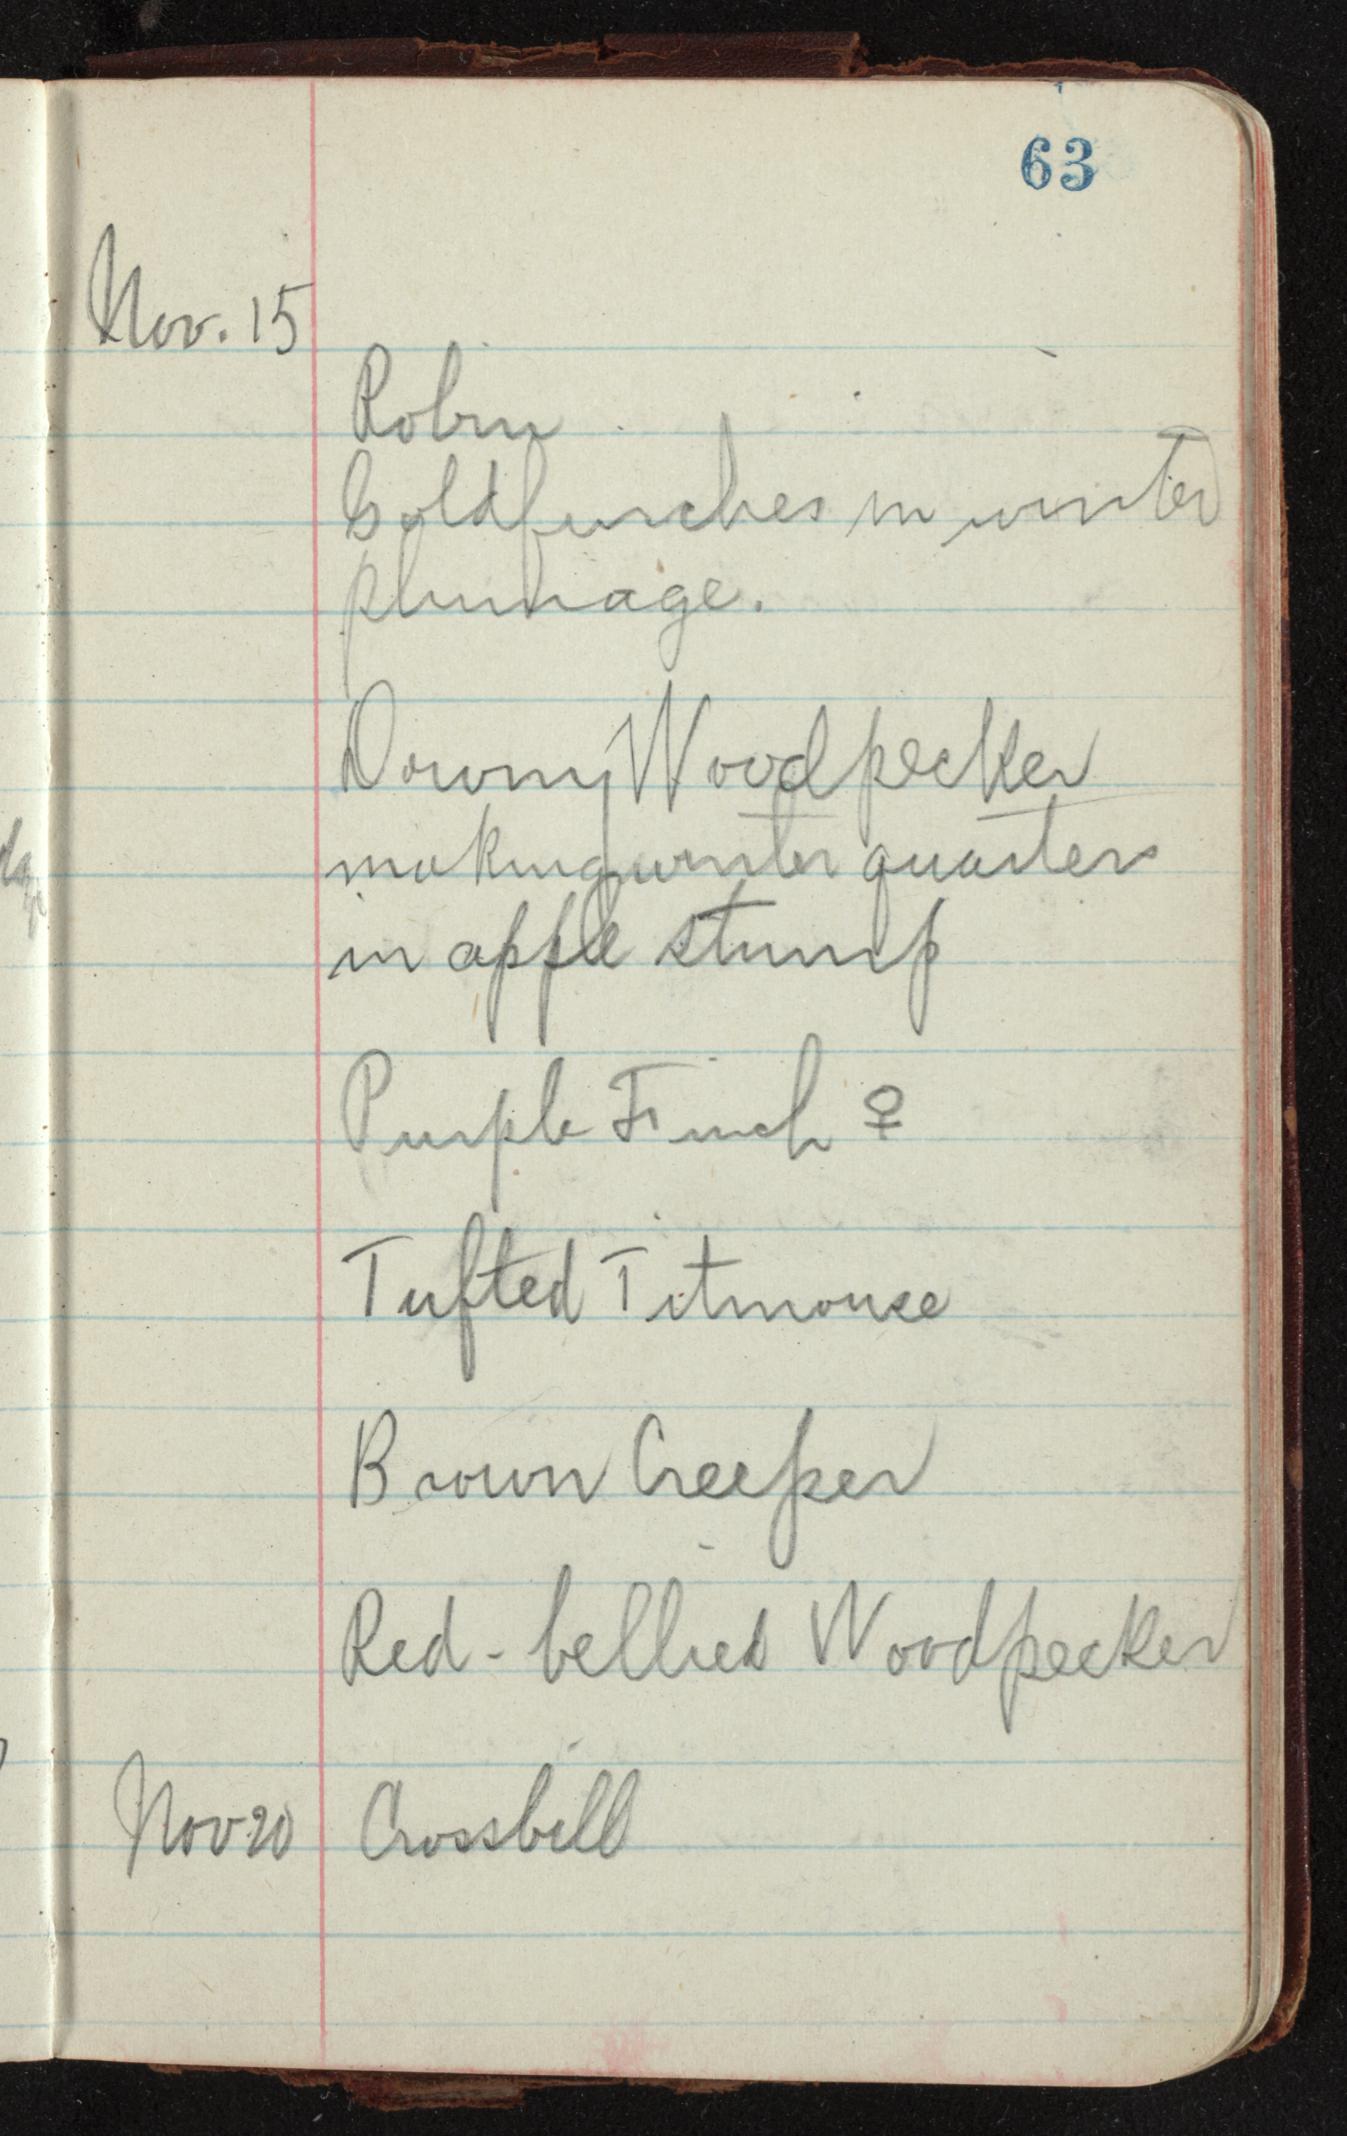 63
Nov. 15
Robin
Goldfinches in winter
plumage.
Downy Woodpecker
making winter quarters
in apple stump
Purple Finch ♀
Tufted Titmouse
Brown Creeper
Red-bellied Woodpecker
Nov 20 Crossbill